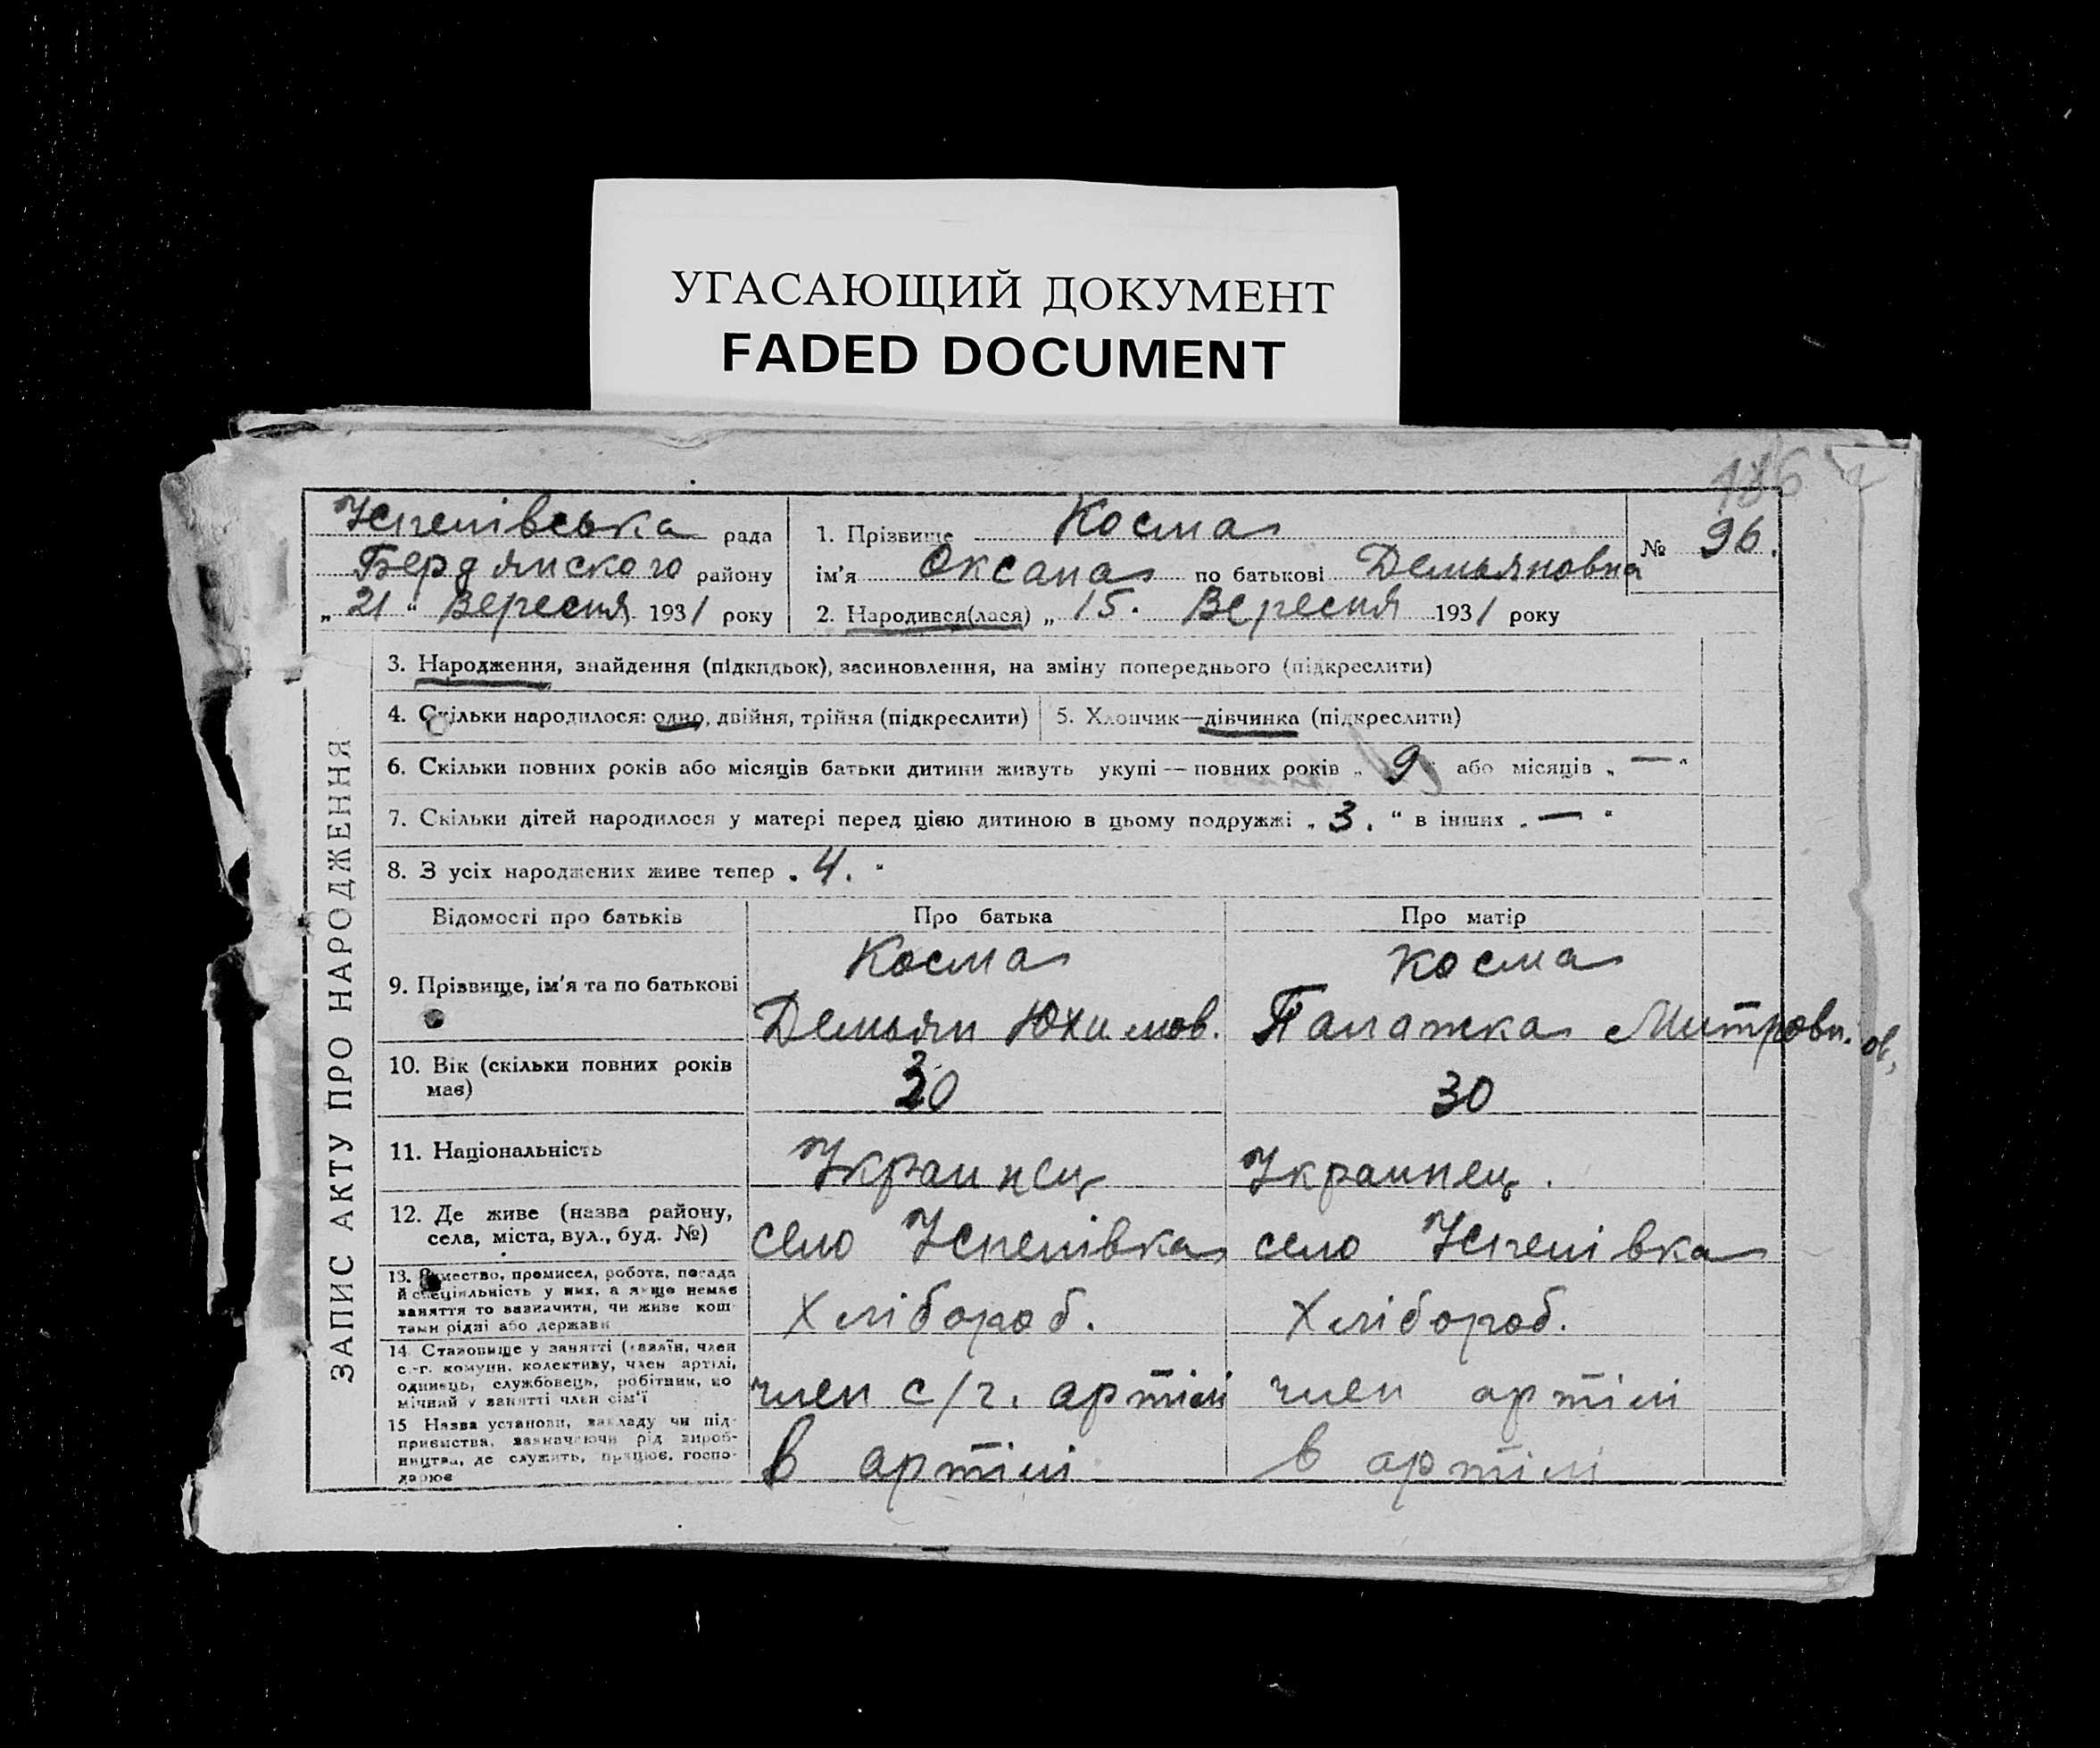 УГАСАЮЩИЙ ДОКУМЕНТ
FADED DOCUMENT
186
Успенівська рада
Бердянского району
„ 21 “ Вересня 1931 року
1. Прізвище Косма
ім'я Оксана по батькові Демьяновна
№ 96.
2. Народився(лася) „ 15. Вересня 1931 року
ЗАПИС АКТУ ПРО НАРОДЖЕННЯ
3. Народження, знайдення (підкидьок), засиновлення, на зміну попереднього (підкреслити)
4. Скільки народилося: одно, двійня, трійня (підкреслити)
5. Хлопчик—дівчинка (підкреслити)
6. Скільки повних років або місяців батьки дитини живуть укупі — повних років „ 9 “ або місяців „ — “
7. Скільки дітей народилося у матері перед цією дитиною в цьому подружжі „ 3. “ в інших „ — “
8. З усіх народжених живе тепер „ 4. “
Відомості про батьків Про батька Про матір
9. Прізвище, ім'я та по батькові
Косма
Демьян Юхимов.
Косма
Палажка Митровн.
10. Вік (скільки повних років
має)
30
30
11. Національність
Украинец
Украинец.
12. Де живе (назва району,
села, міста, вул., буд. №)
село Успенівка
село Успенівка
13. Ремество, промисел, робота, посада
й спеціяльність у них, а якщо немає
заняття то зазначити, чи живе кош
тами рідні або держави
Хлібороб.
Хлібороб.
14 Становище у занятті (хазяїн, член
с.-г. комуни, колективу, член артілі,
одинець, службовець, робітник, по
мічний у занятті член сім'ї
член с/г. артілі
член артілі
15 Назва установи, закладу чи під-
приємства, зазначаючи рід вироб-
ництва, де служить, працює, госпо-
дарює
в артілі
в артілі